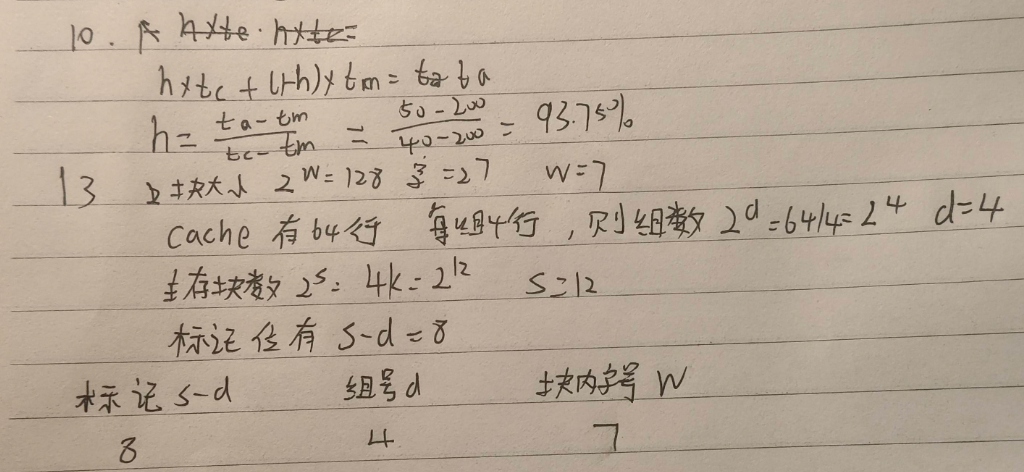 10.
h×tc+(1-h)×tm=ta
h=(ta-tm)/(tc-tm)=(50-200)/(40-200)=93.75%
13 块大小 2^w=128 字=2^7 w=7
cache 有64行 每组4行,则组数 2^d=64/4=2^4 d=4
主存块数 2^s=4k=2^12 s=12
标记位有 s-d=8
标记 s-d 组号d 块内字号 W
8 4 7